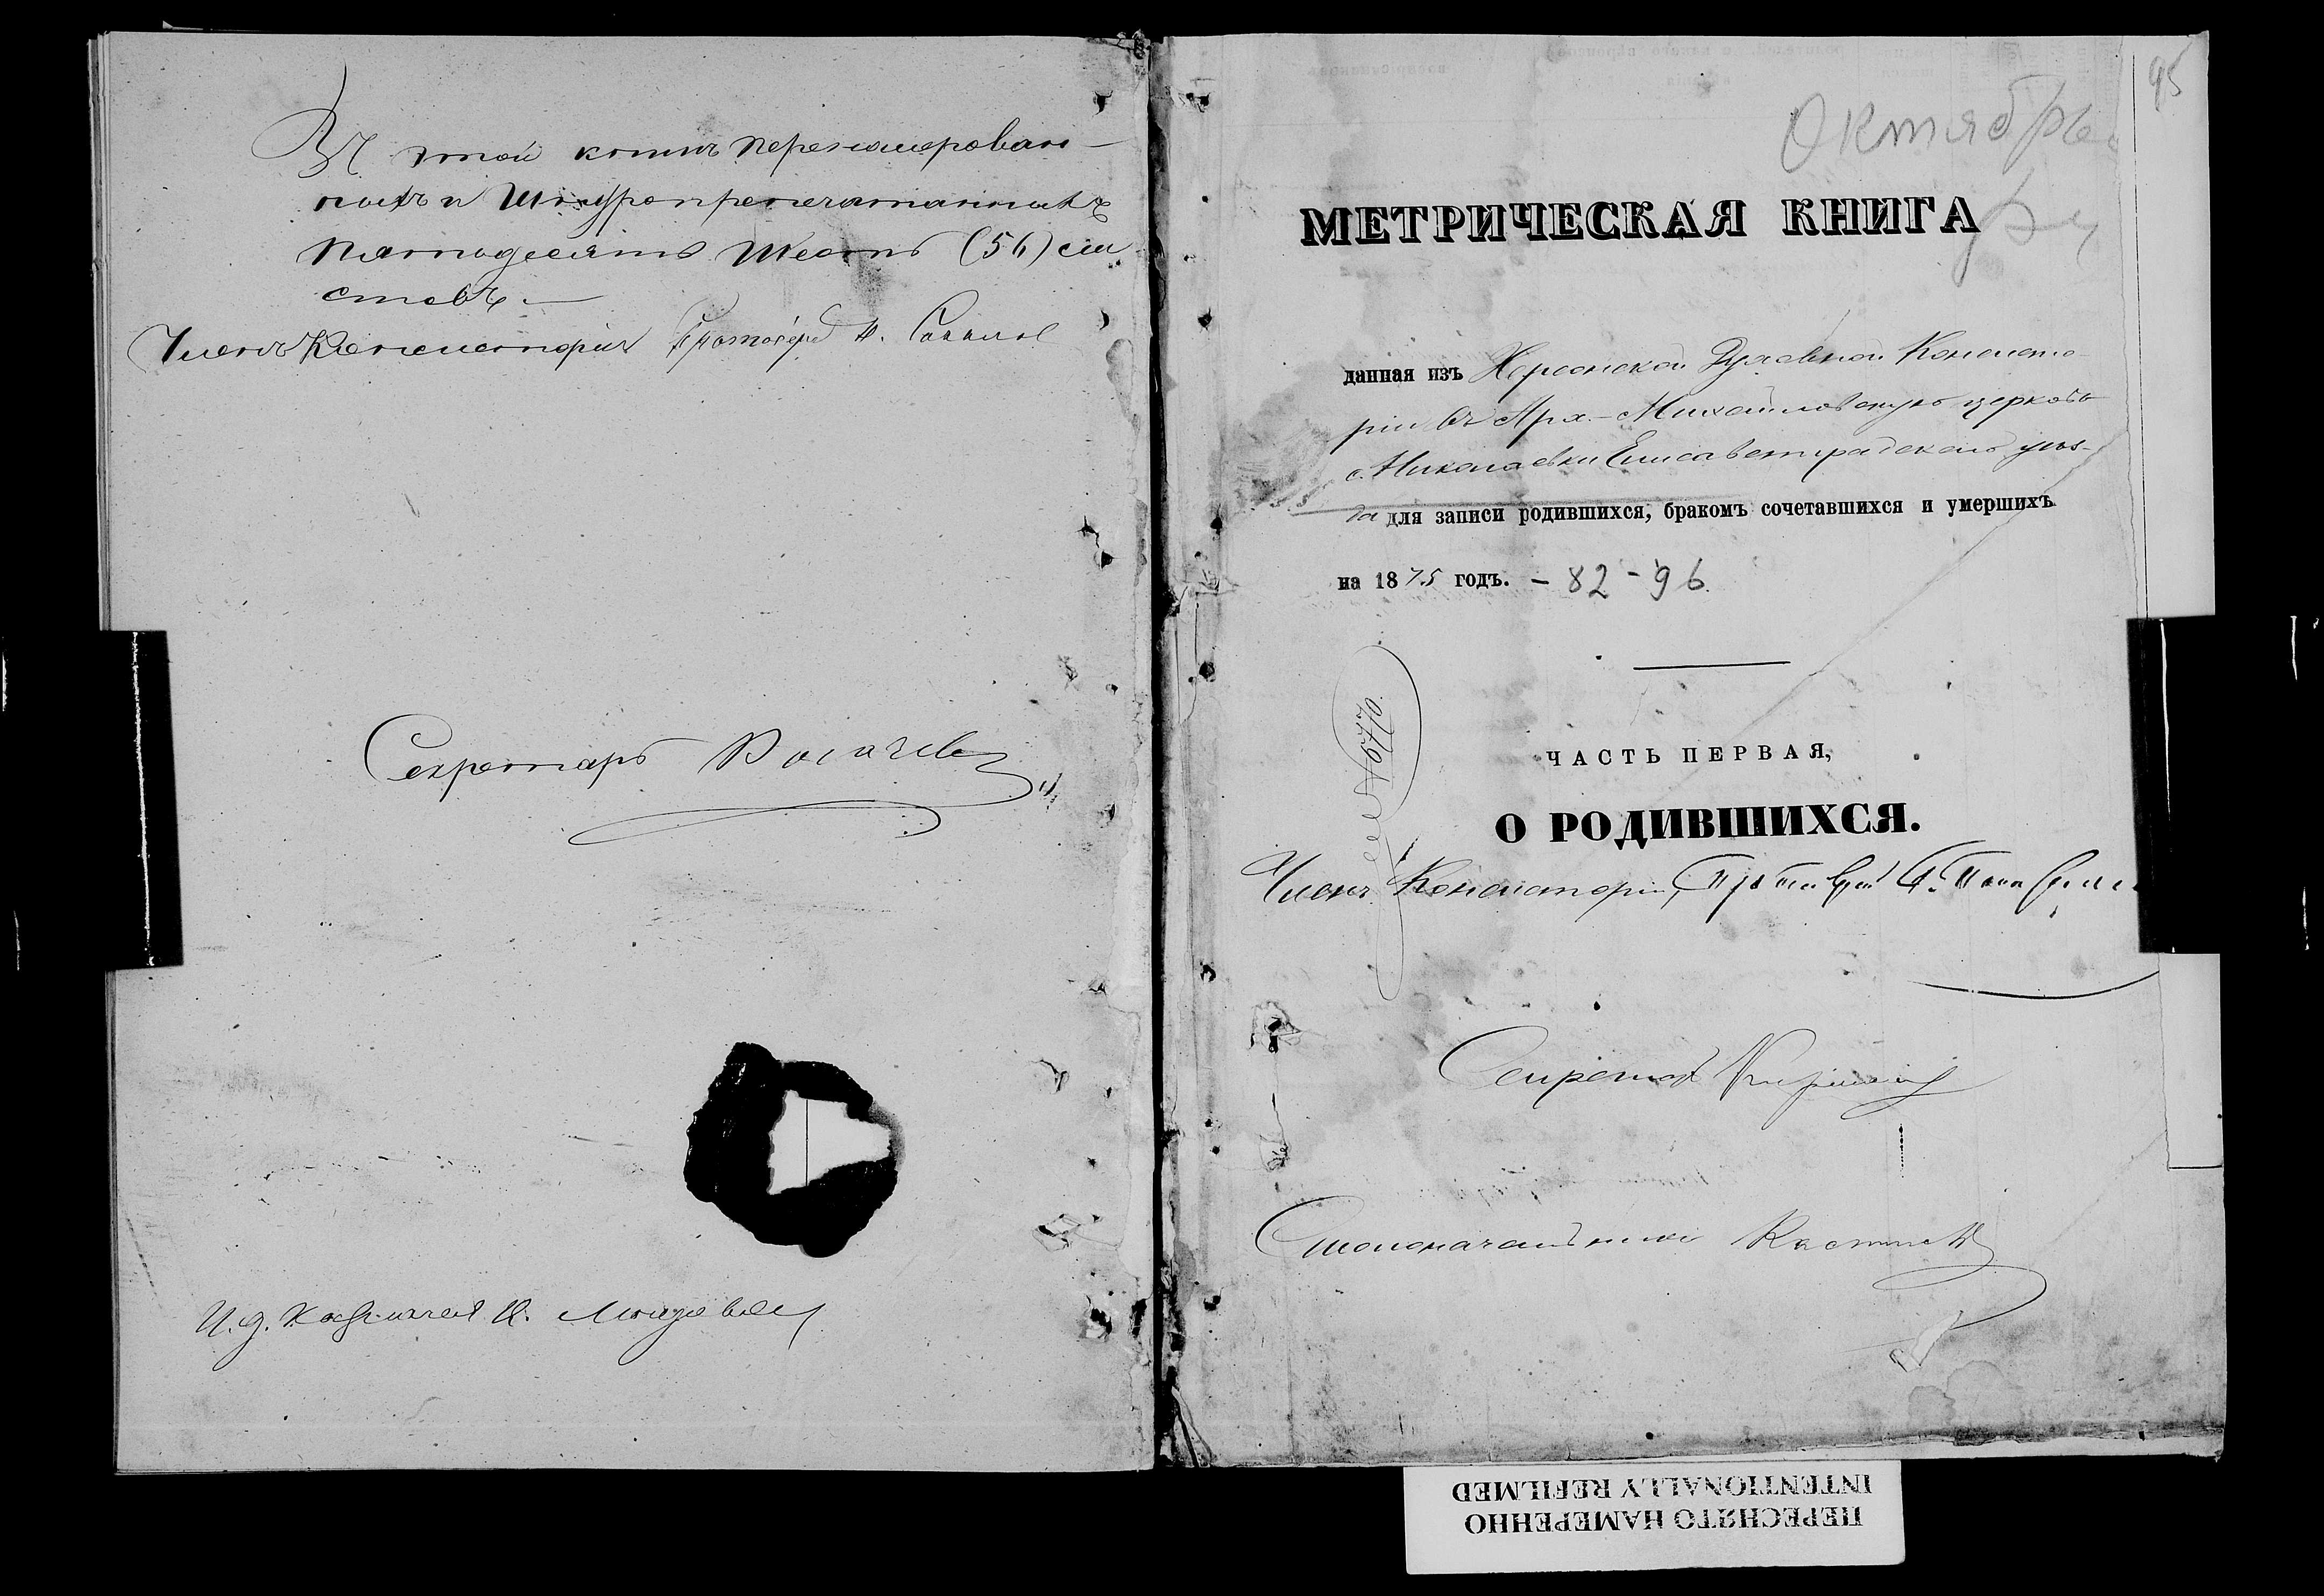 Въ этой книгѣ перенумерован-
ныхъ и шнуропрепечатанныхъ
пятьдесятъ шесть (56) ли
стовъ.—
Членъ Консисторіи Протоіерей
Секретарь
И. д. Казначея
95
Октябрь
МЕТРИЧЕСКАЯ КНИГА
данная изъ Херсонской Духовной Консисто-
ріи въ Арх.-Михайловскую церковь
с. Николаевки Елисаветградскаго уѣз-
да для записи родившихся, бракомъ сочетавшихся и умершихъ
на 1875 годъ. – 82 - 96.
№ 5770.
ЧАСТЬ ПЕРВАЯ,
О РОДИВШИХСЯ.
Членъ Консисторіи, Протоіерей
Секретарь
Столоначальникъ
ПЕРЕСНЯТО НАМЕРЕННО
INTENTIONALLY REFILMED